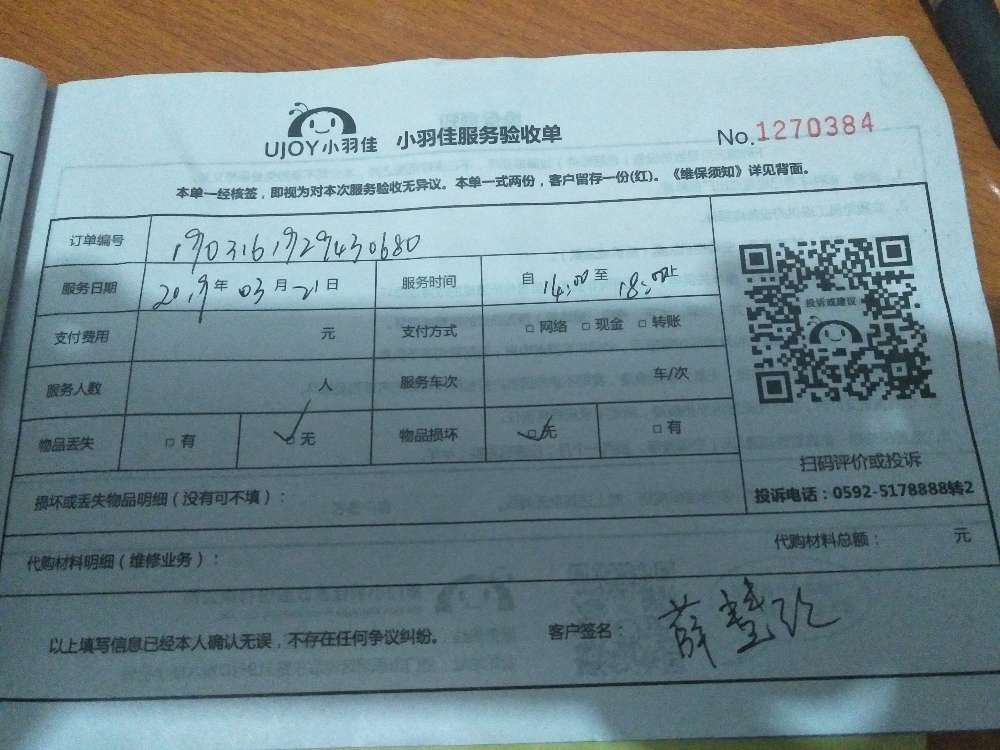 UJOY小羽佳 小羽佳服务验收单 No.1270384
本单一经核签，即视为对本次服务验收无异议。本单一式两份，客户留存一份(红)。《维保须知》详见背面。
订单编号 190316192943​0680
服务日期 2019年03月21日 服务时间 自14:00至18:00止
支付费用 元 支付方式 □网络 □现金 □转账
服务人数 人 服务车次 车/次
物品丢失 □有 ☑无 物品损坏 ☑无 □有
投诉或建议
扫码评价或投诉
投诉电话：0592-5178888转2
损坏或丢失物品明细（没有可不填）：
代购材料明细（维修业务）： 代购材料总额： 元
以上填写信息已经本人确认无误，不存在任何争议纠纷。 客户签名：薛慧玲